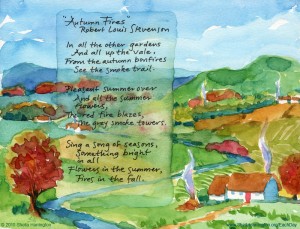 "Autumn Fires"
Robert Louis Stevenson
In all the other gardens
And all up the vale,
From the autumn bonfires
See the smoke trail.
Pleasant summer over
And all the summer
flowers,
The red fire blazes,
The grey smoke towers.
Sing a song of seasons,
Something bright
in all
Flowers in the summer,
Fires in the fall.